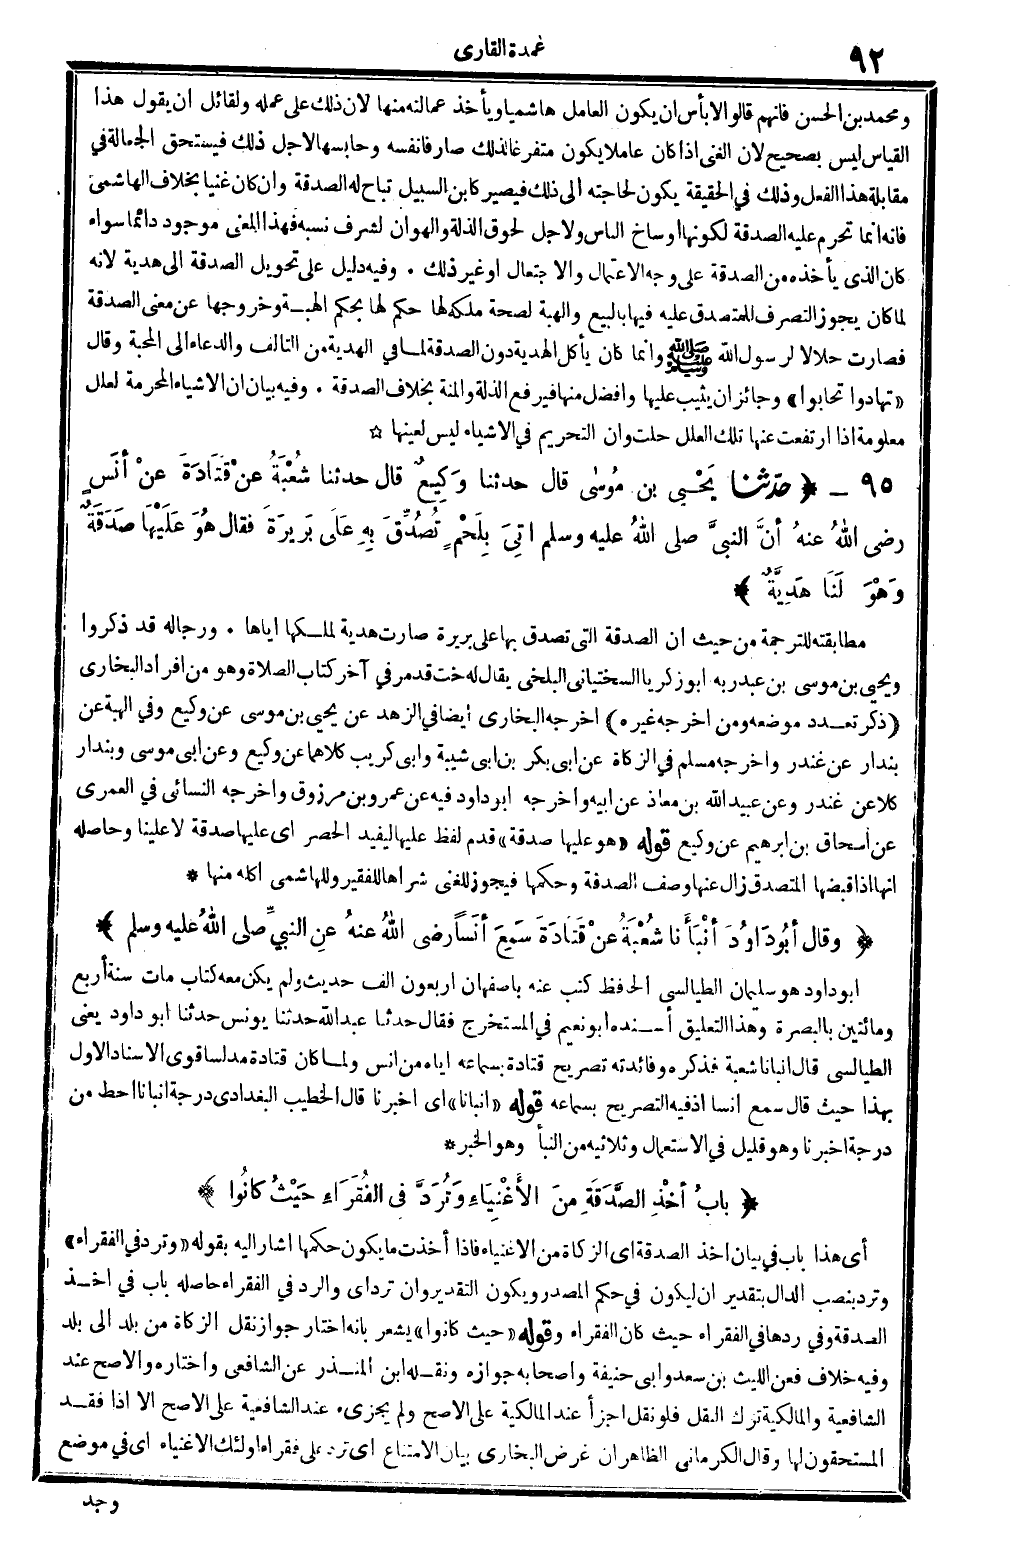 ٩٢
عمدة القارى
ومحمد بن الحسن فانهم قالوا لابأس ان يكون العامل هاشميا ويأخذ عمالته منها لان ذلك على عمله ولقائل ان يقول هذا
القياس ليس بصحيح لان الغنى اذا كان عاملا يكون متفرغا لذلك صارفا نفسه وحابسها لاجل ذلك فيستحق الجمالة في
مقابلة هذا الفعل وذلك في الحقيقة يكون لحاجته الى ذلك فيصير كابن السبيل تباح له الصدقة وان كان غنيا بخلاف الهاشمى
فانه انما تحرم عليه الصدقة لكونها أوساخ الناس ولاجل لحوق الذلة والهوان لشرف نسبه فهذا المعنى موجود دائما سواء
كان الذى يأخذه من الصدقة على وجه الاعتمال والاجتعال او غير ذلك . وفيه دليل على تحويل الصدقة الى هدية لانه
لما كان يجوز التصرف للمتصدق عليه فيها بالبيع والهبة لصحة ملكه لها حكم لها بحكم الهبة وخروجها عن معنى الصدقة
فصارت حلالا لرسول الله ﷺ وانما كان يأكل الهدية دون الصدقة لما في الهدية من التالف والدعاء الى المحبة وقال
«تهادوا تحابوا» وجائز ان يثيب عليها وافضل منها فيرفع الذلة والمنة بخلاف الصدقة . وفيه بيان ان الاشياء المحرمة لعلل
معلومة اذا ارتفعت عنها تلك العلل حلت وان التحريم في الاشياء ليس لعينها ☆
٩٥ ــ ﴿ حدثنا يَحْيى بن مُوسٰى قال حدثنا وَكِيعٌ قال حدثنا شُعْبَةُ عنْ قَتَادَةَ عنْ أنَسٍ
رضى اللهُ عنهُ أنَّ النبىَّ صلى اللهُ عليه وسلم اتِىَ بِلَحْمٍ تُصُدِّقَ بِهِ عَلَى بَرِيرَةَ فقال هُوَ عَلَيْهَا صَدَقَةٌ
وَهْوَ لَنَا هَدِيَّةٌ ﴾
مطابقته للترجمة من حيث ان الصدقة التى تصدق بها على بريرة صارت هدية لملكها اياها . ورجاله قد ذكروا
ويحيى بن موسى بن عبد ربه ابو زكريا السختيانى البلخى يقال له خت قد مر في آخر كتاب الصلاة وهو من افراد البخارى
(ذكر تعدد موضعه ومن اخرجه غيره) اخرجه البخارى أيضا في الزهد عن يحيى بن موسى عن وكيع وفي الهبة عن
بندار عن غندر واخرجه مسلم في الزكاة عن ابى بكر بن ابى شيبة وابى كريب كلاهما عن وكيع وعن ابى موسى وبندار
كلا عن غندر وعن عبيد الله بن معاذ عن ابيه واخرجه ابو داود فيه عن عمرو بن مرزوق واخرجه النسائى في العمرى
عن أسحاق بن ابرهيم عن وكيع قوله «هو عليها صدقة» قدم لفظ عليها ليفيد الحصر اى عليها صدقة لا علينا وحاصله
انها اذا قبضها المتصدق زال عنها وصف الصدقة وحكمها فيجوز للغنى شراها للفقير وللهاشمى اكله منها *
﴿ وقال أبُو دَاوُدَ أنْبَأَنا شُعْبَةُ عنْ قَتَادَةَ سَمِعَ أنَساً رضى اللهُ عنهُ عنِ النبىِّ صلى اللهُ عليه وسلم ﴾
ابو داود هو سليمان الطيالسى الحافظ كتب عنه باصفهان اربعون الف حديث ولم يكن معه كتاب مات سنة أربع
ومائتين بالبصرة وهذا التعليق أسنده ابو نعيم في المستخرج فقال حدثنا عبد الله حدثنا يونس حدثنا ابو داود يعنى
الطيالسى قال انبانا شعبة فذكره وفائدته تصريح قتادة بسماعه اياه من انس ولما كان قتادة مدلسا قوى الاسناد الاول
بهذا حيث قال سمع انسا اذ فيه التصريح بسماعه قوله «انبانا» اى اخبرنا قال الخطيب البغدادى درجة انبانا احط من
درجة اخبرنا وهو قليل في الاستعمال وثلاثيه من النبأ وهو الخبر *
﴿ بابُ أخْذِ الصَّدَقَةِ مِنَ الأَغْنِيَاءِ وَتُرَدَّ فى الفُقَرَاءِ حَيْثُ كانُوا ﴾
أى هذا باب في بيان اخذ الصدقة اى الزكاة من الاغنياء فاذا أخذت ما يكون حكمها اشار اليه بقوله «وترد في الفقراء»
وترد بنصب الدال بتقدير ان ليكون في حكم المصدر ويكون التقدير وان ترد اى والرد في الفقراء حاصله باب في اخذ
الصدقة وفي ردها في الفقراء حيث كان الفقراء وقوله «حيث كانوا» يشعر بانه اختار جواز نقل الزكاة من بلد الى بلد
وفيه خلاف فعن الليث بن سعد وابى حنيفة واصحابه جوازه ونقله ابن المنذر عن الشافعى واختاره والاصح عند
الشافعية والمالكية ترك النقل فلو نقل اجزأ عند المالكية على الاصح ولم يجزىء عند الشافعية على الاصح الا اذا فقد
المستحقون لها وقال الكرمانى الظاهر ان غرض البخارى بيان الامتناع اى ترد على فقراء اولئك الاغنياء اى في موضع
وجد